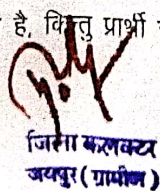 है, किन्तु प्रार्थी
जिला कलक्टर
जयपुर (ग्रामीण)